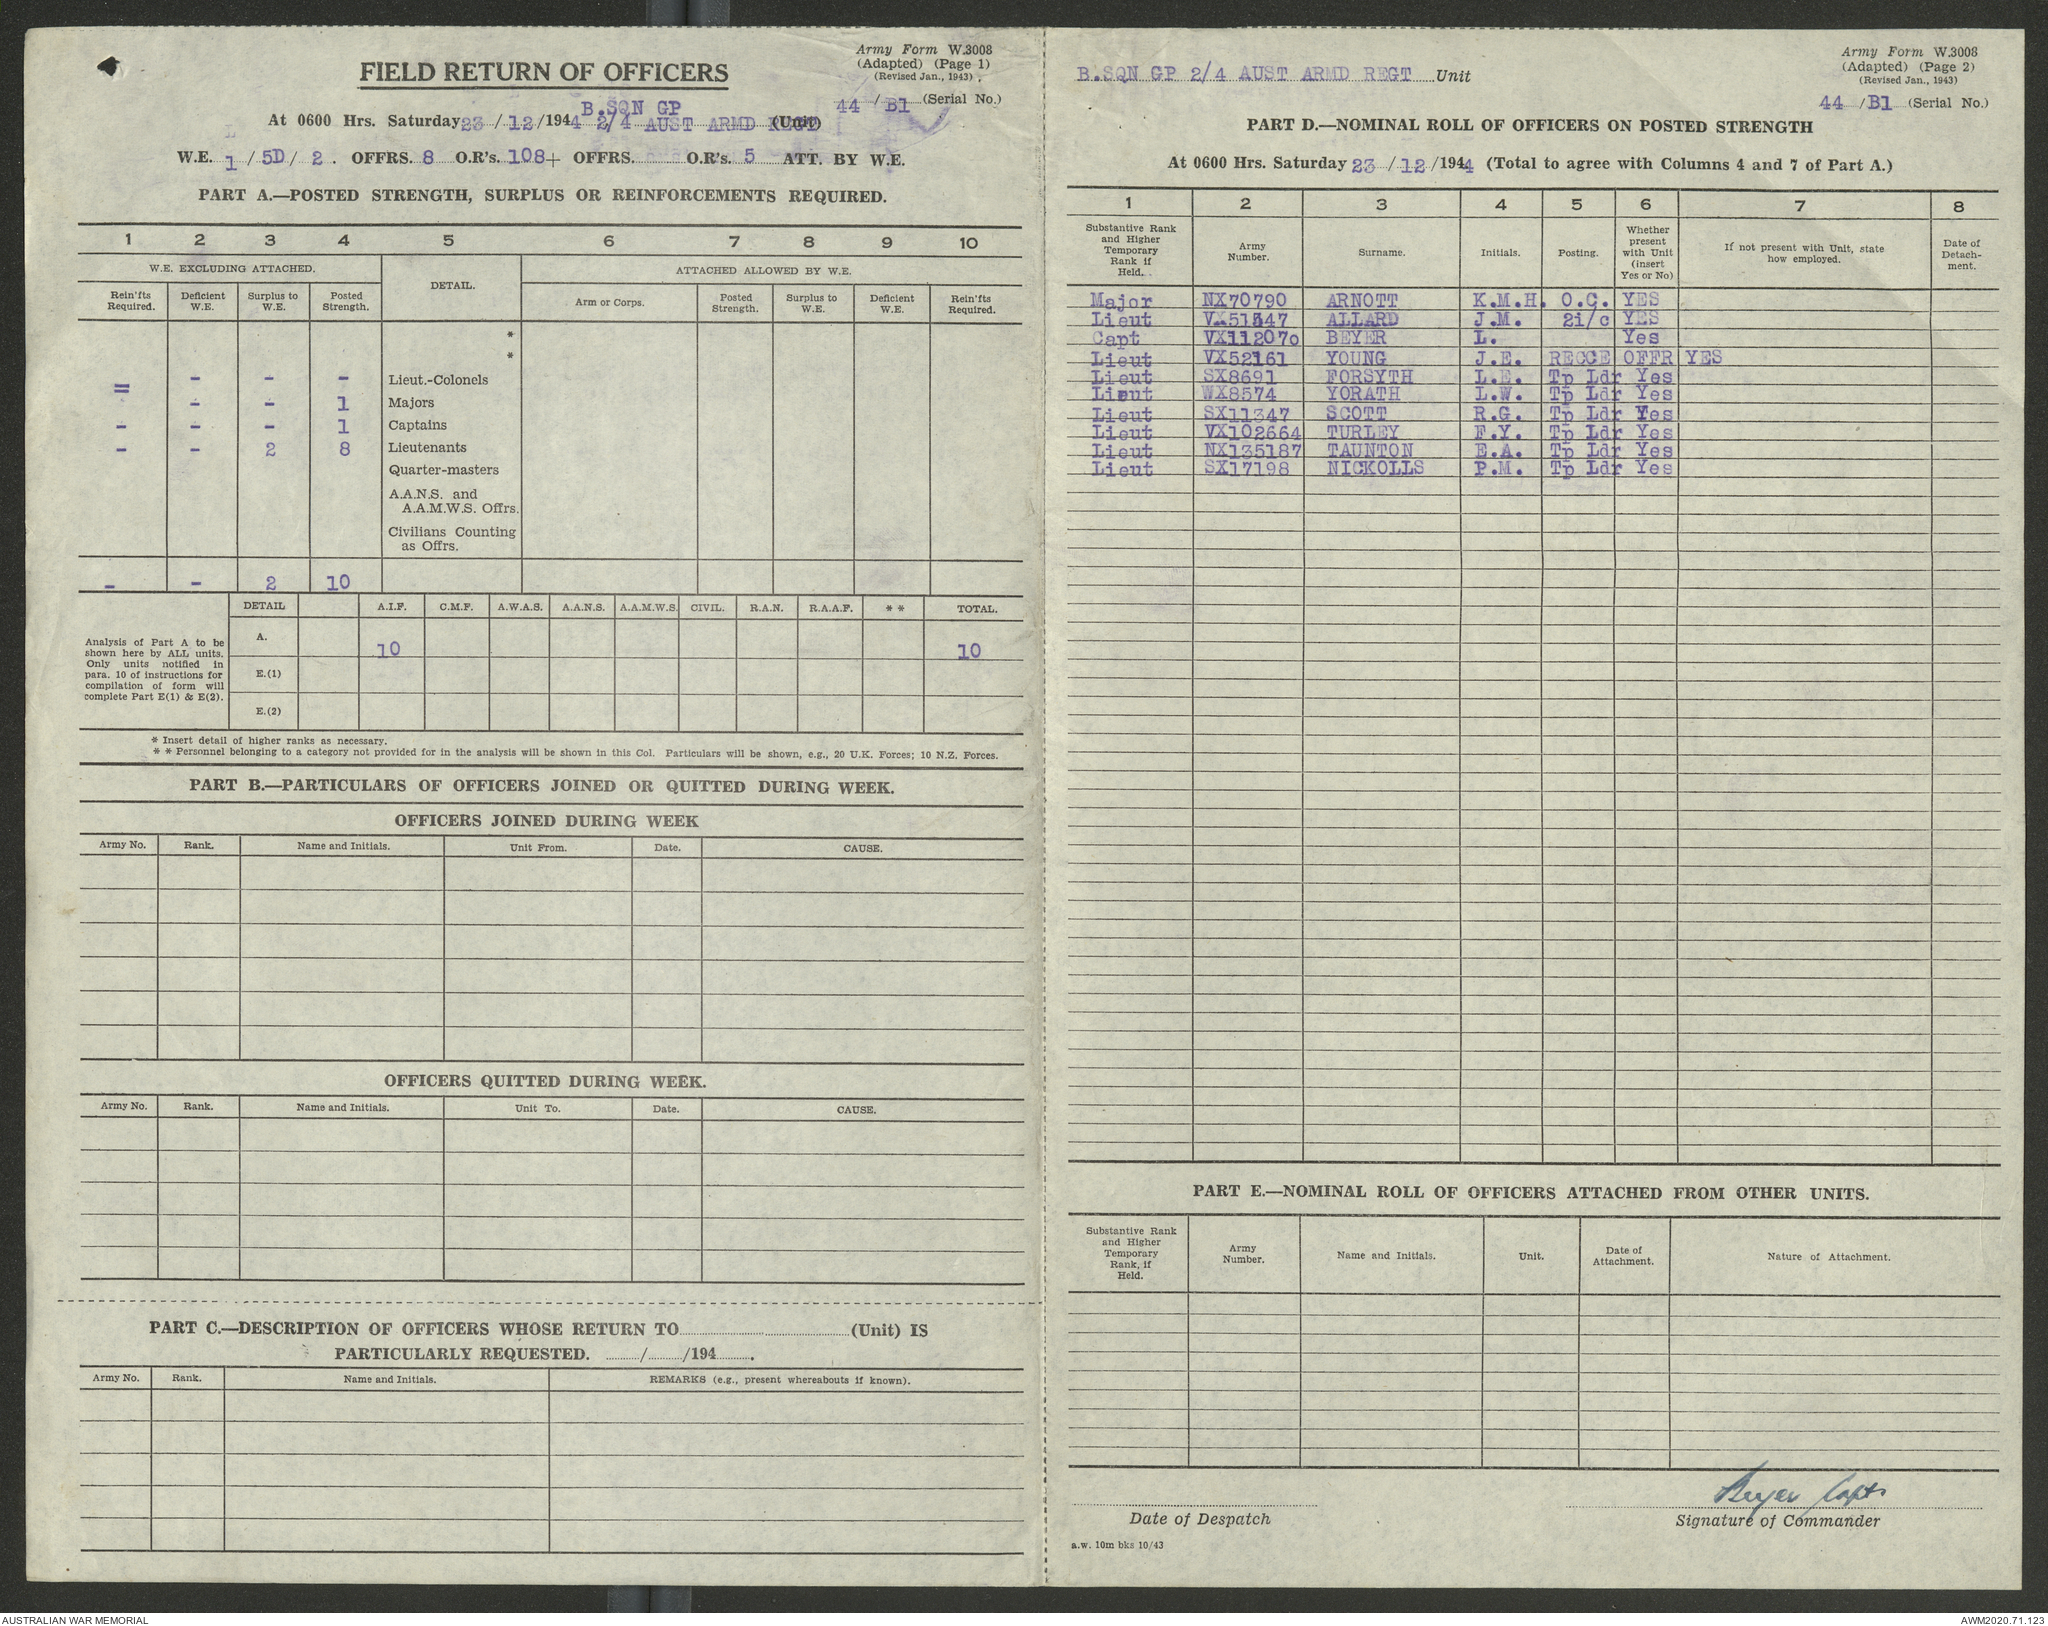 Army Form W.3008
(Adapted) (Page 1)
(Revised Jan., 1943)
FIELD RETURN OF OFFICERS
44 / B1 (Serial No.)
B.SQN GP
At 0600 Hrs. Saturday 23/12/1944 2/4 AUST ARMD REGT (Unit)
W.E. 1 / 5D / 2 . OFFRS. 8 O.R's. 108+ OFFRS. O.R's. 5 ATT. BY W.E.
PART A.—POSTED STRENGTH, SURPLUS OR REINFORCEMENTS REQUIRED.
1 2 3 4 5 6 7 8 9 10
W.E. EXCLUDING ATTACHED. DETAIL. ATTACHED ALLOWED BY W.E.
Rein'fts Required. Deficient W.E. Surplus to W.E. Posted Strength. Arm or Corps. Posted Strength. Surplus to W.E. Deficient W.E. Rein'fts Required.
*
*
= - - - Lieut.-Colonels
- - 1 Majors
- - - 1 Captains
- - 2 8 Lieutenants
Quarter-masters
A.A.N.S. and
A.A.M.W.S. Offrs.
Civilians Counting
as Offrs.
- - 2 10
DETAIL A.I.F. C.M.F. A.W.A.S. A.A.N.S. A.A.M.W.S. CIVIL. R.A.N. R.A.A.F. * * TOTAL.
Analysis of Part A to be
shown here by ALL units.
Only units notified in
para. 10 of instructions for
compilation of form will
complete Part E(1) & E(2).
A. 10 10
E.(1)
E.(2)
* Insert detail of higher ranks as necessary.
* * Personnel belonging to a category not provided for in the analysis will be shown in this Col. Particulars will be shown, e.g., 20 U.K. Forces; 10 N.Z. Forces.
PART B.—PARTICULARS OF OFFICERS JOINED OR QUITTED DURING WEEK.
OFFICERS JOINED DURING WEEK
Army No. Rank. Name and Initials. Unit From. Date. CAUSE.
OFFICERS QUITTED DURING WEEK.
Army No. Rank. Name and Initials. Unit To. Date. CAUSE.
PART C.—DESCRIPTION OF OFFICERS WHOSE RETURN TO (Unit) IS
PARTICULARLY REQUESTED. / /194 .
Army No. Rank. Name and Initials. REMARKS (e.g., present whereabouts if known).
Army Form W.3008
(Adapted) (Page 2)
(Revised Jan., 1943)
B.SQN GP 2/4 AUST ARMD REGT Unit
44 /B1 (Serial No.)
PART D.—NOMINAL ROLL OF OFFICERS ON POSTED STRENGTH
At 0600 Hrs. Saturday 23 /12 /1944 (Total to agree with Columns 4 and 7 of Part A.)
1 2 3 4 5 6 7 8
Substantive Rank and Higher Temporary Rank if Held. Army Number. Surname. Initials. Posting. Whether present with Unit (insert Yes or No) If not present with Unit, state how employed. Date of Detach- ment.
Major NX70790 ARNOTT K.M.H. O.C. YES
Lieut ALLARD J.M. 2i/c YES
Capt VX112070 BEYER L. Yes
Lieut VX52161 YOUNG J.E. RECCE OFFR YES
Lieut SX8691 FORSYTH L.E. Tp Ldr Yes
Lieut WX8574 YORATH L.W. Tp Ldr Yes
Lieut SX11347 SCOTT R.G. Tp Ldr Yes
Lieut VX102664 TURLEY F.Y. Tp Ldr Yes
Lieut NX135187 TAUNTON E.A. Tp Ldr Yes
Lieut SX17198 NICKOLLS P.M. Tp Ldr Yes
PART E.—NOMINAL ROLL OF OFFICERS ATTACHED FROM OTHER UNITS.
Substantive Rank and Higher Temporary Rank, if Held. Army Number. Name and Initials. Unit. Date of Attachment. Nature of Attachment.
Beyer Capt
Date of Despatch Signature of Commander
a.w. 10m bks 10/43
AUSTRALIAN WAR MEMORIAL AWM2020.71.123